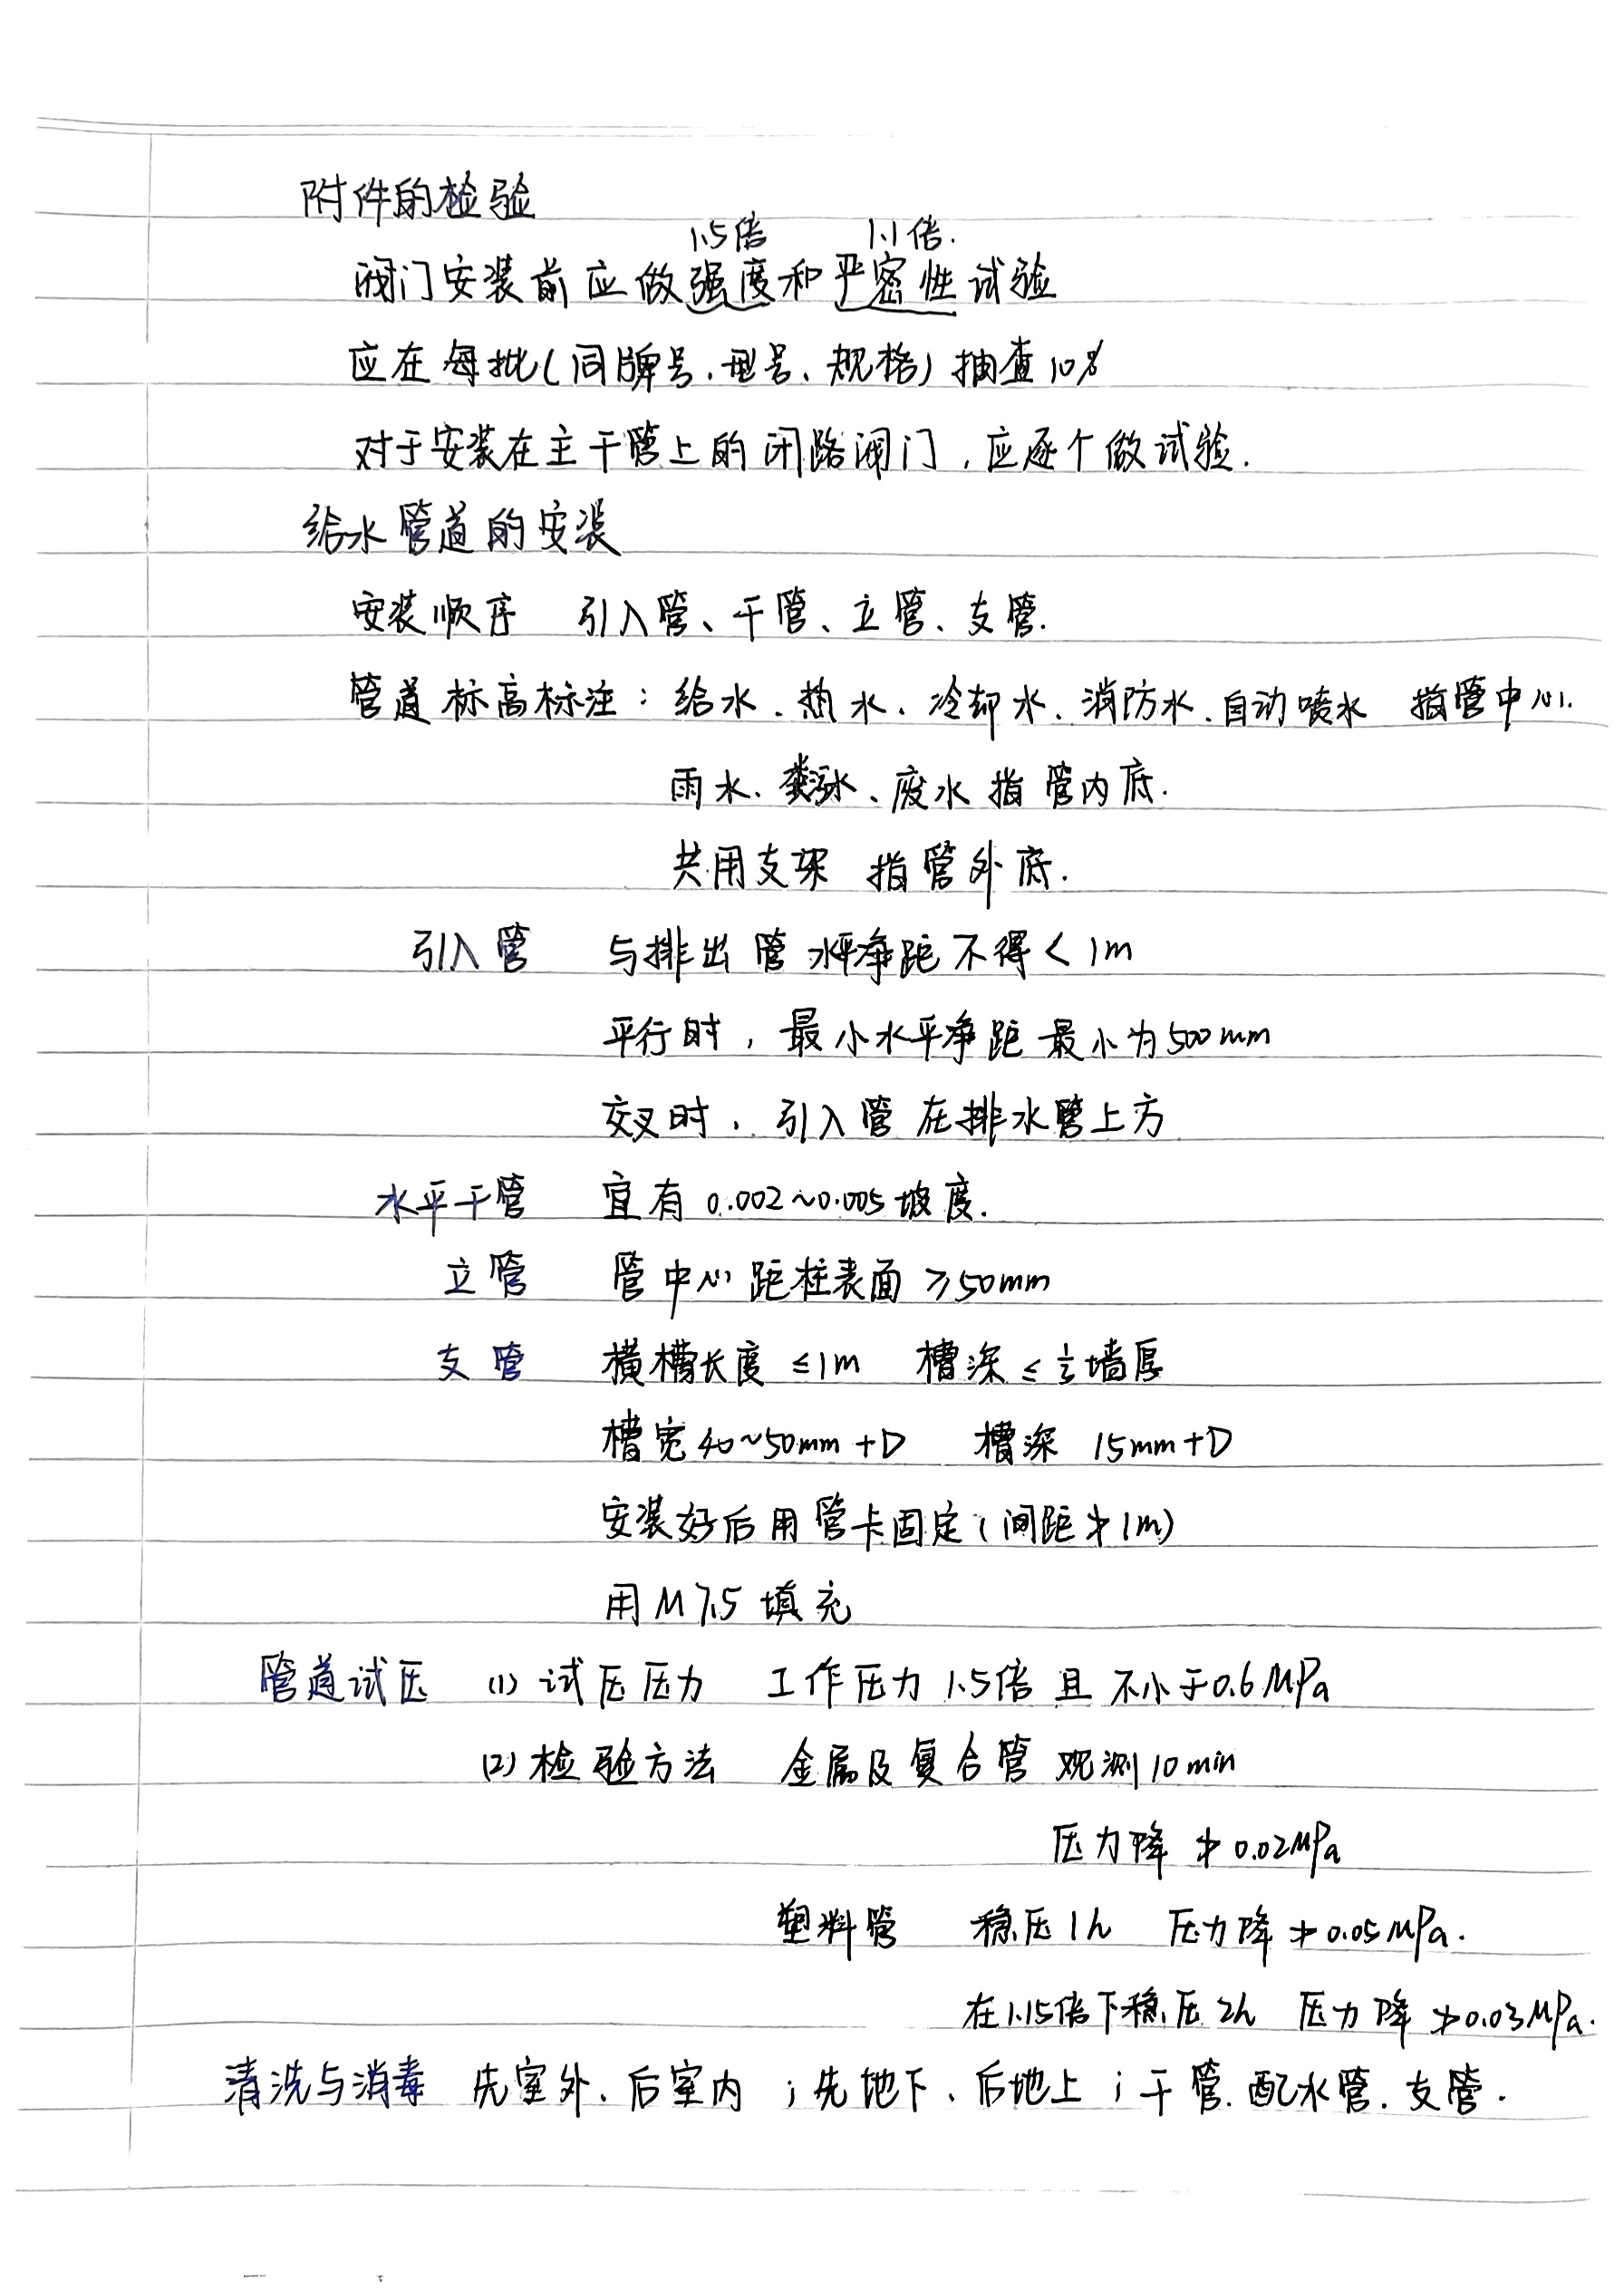 附件的检验
1.5倍 1.1倍.
阀门安装前应做强度和严密性试验
应在每批(同牌号、型号、规格)抽查10%
对于安装在主干管上的闭路阀门,应逐个做试验.
给水管道的安装
安装顺序 引入管、干管、立管、支管.
管道标高标注: 给水、热水、冷却水、消防水、自动喷水 指管中心.
雨水、粪水、废水 指管内底.
共用支架 指管外底.
引入管 与排出管水平净距不得<1m
平行时,最小水平净距最小为500mm
交叉时,引入管在排水管上方
水平干管 宜有0.002~0.005坡度.
立管 管中心距柱表面≥50mm
支管 横槽长度≤1m 槽深≤⅓墙厚
槽宽40~50mm+D 槽深 15mm+D
安装好后用管卡固定(间距≯1m)
用M7.5填充
管道试压 (1)试压压力 工作压力1.5倍且不小于0.6MPa
(2)检验方法 金属及复合管 观测10min
压力降≯0.02MPa
塑料管 稳压1h 压力降≯0.05MPa.
在1.15倍下稳压2h 压力降≯0.03MPa.
清洗与消毒 先室外、后室内;先地下、后地上;干管、配水管、支管.